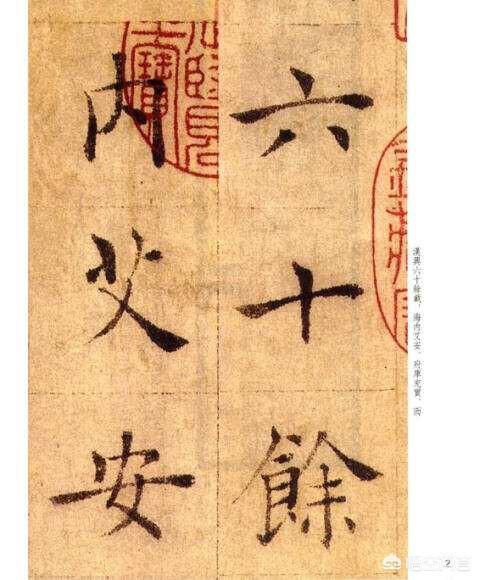 六十餘
内艾安
漢興六十餘載，海内艾安，府庫充實，而
2